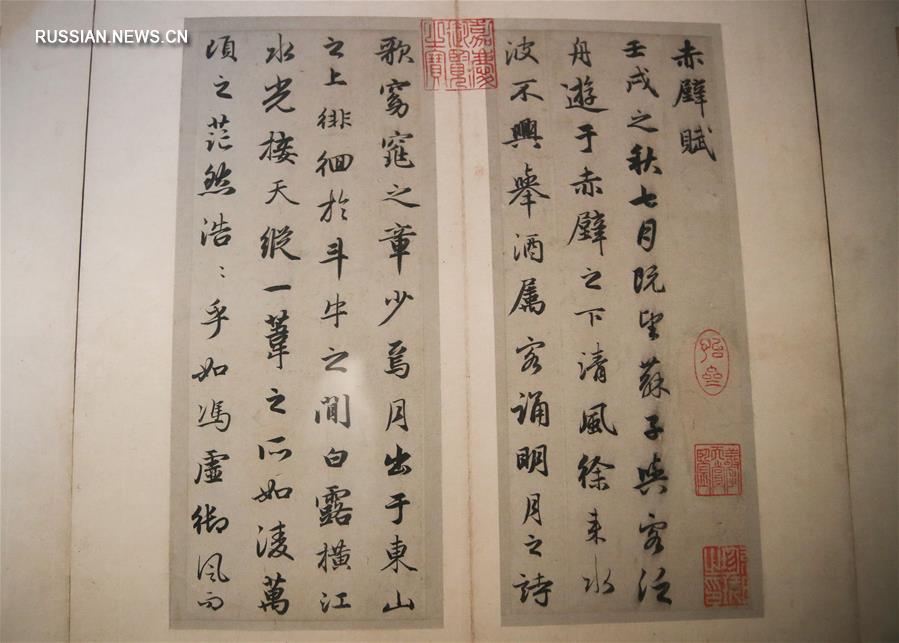 RUSSIAN.NEWS.CN
赤壁賦
壬戌之秋七月既望蘇子與客泛
舟遊于赤壁之下清風徐来水
波不興舉酒属客誦明月之詩
嘉慶御覽之寶
歌窈窕之章少焉月出于東山
之上徘徊於斗牛之間白露橫江
水光接天縱一葦之所如凌萬
頃之茫然浩〻乎如馮虛御風而